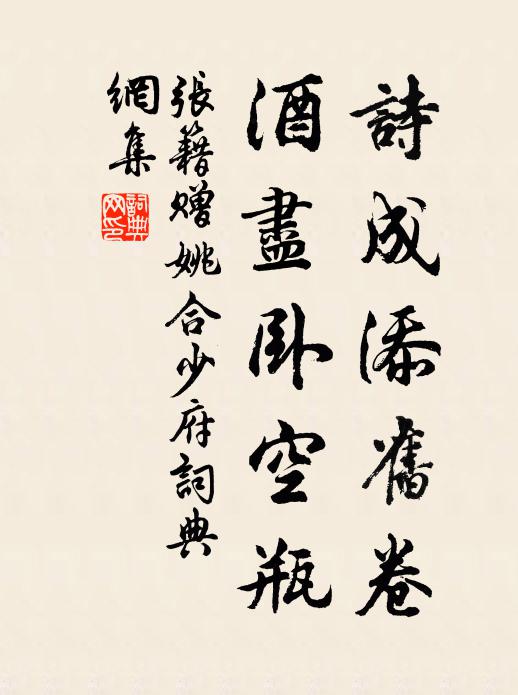 詩成添舊卷
酒盡卧空瓶
張籍贈姚合少府詞典
網集
詞典网印